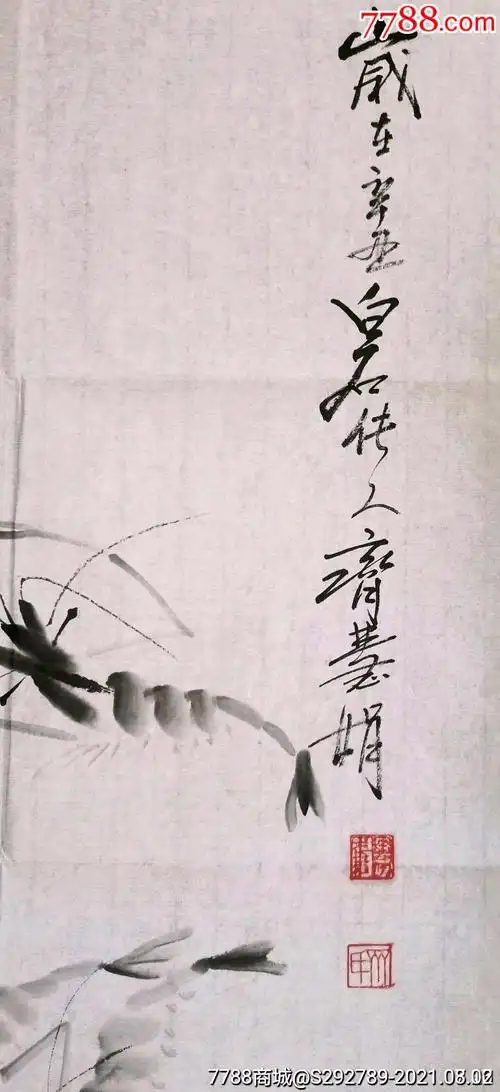 7788.com
歲在辛丑白石传人齊慧娟
7788商城@S292789-2021.03.02